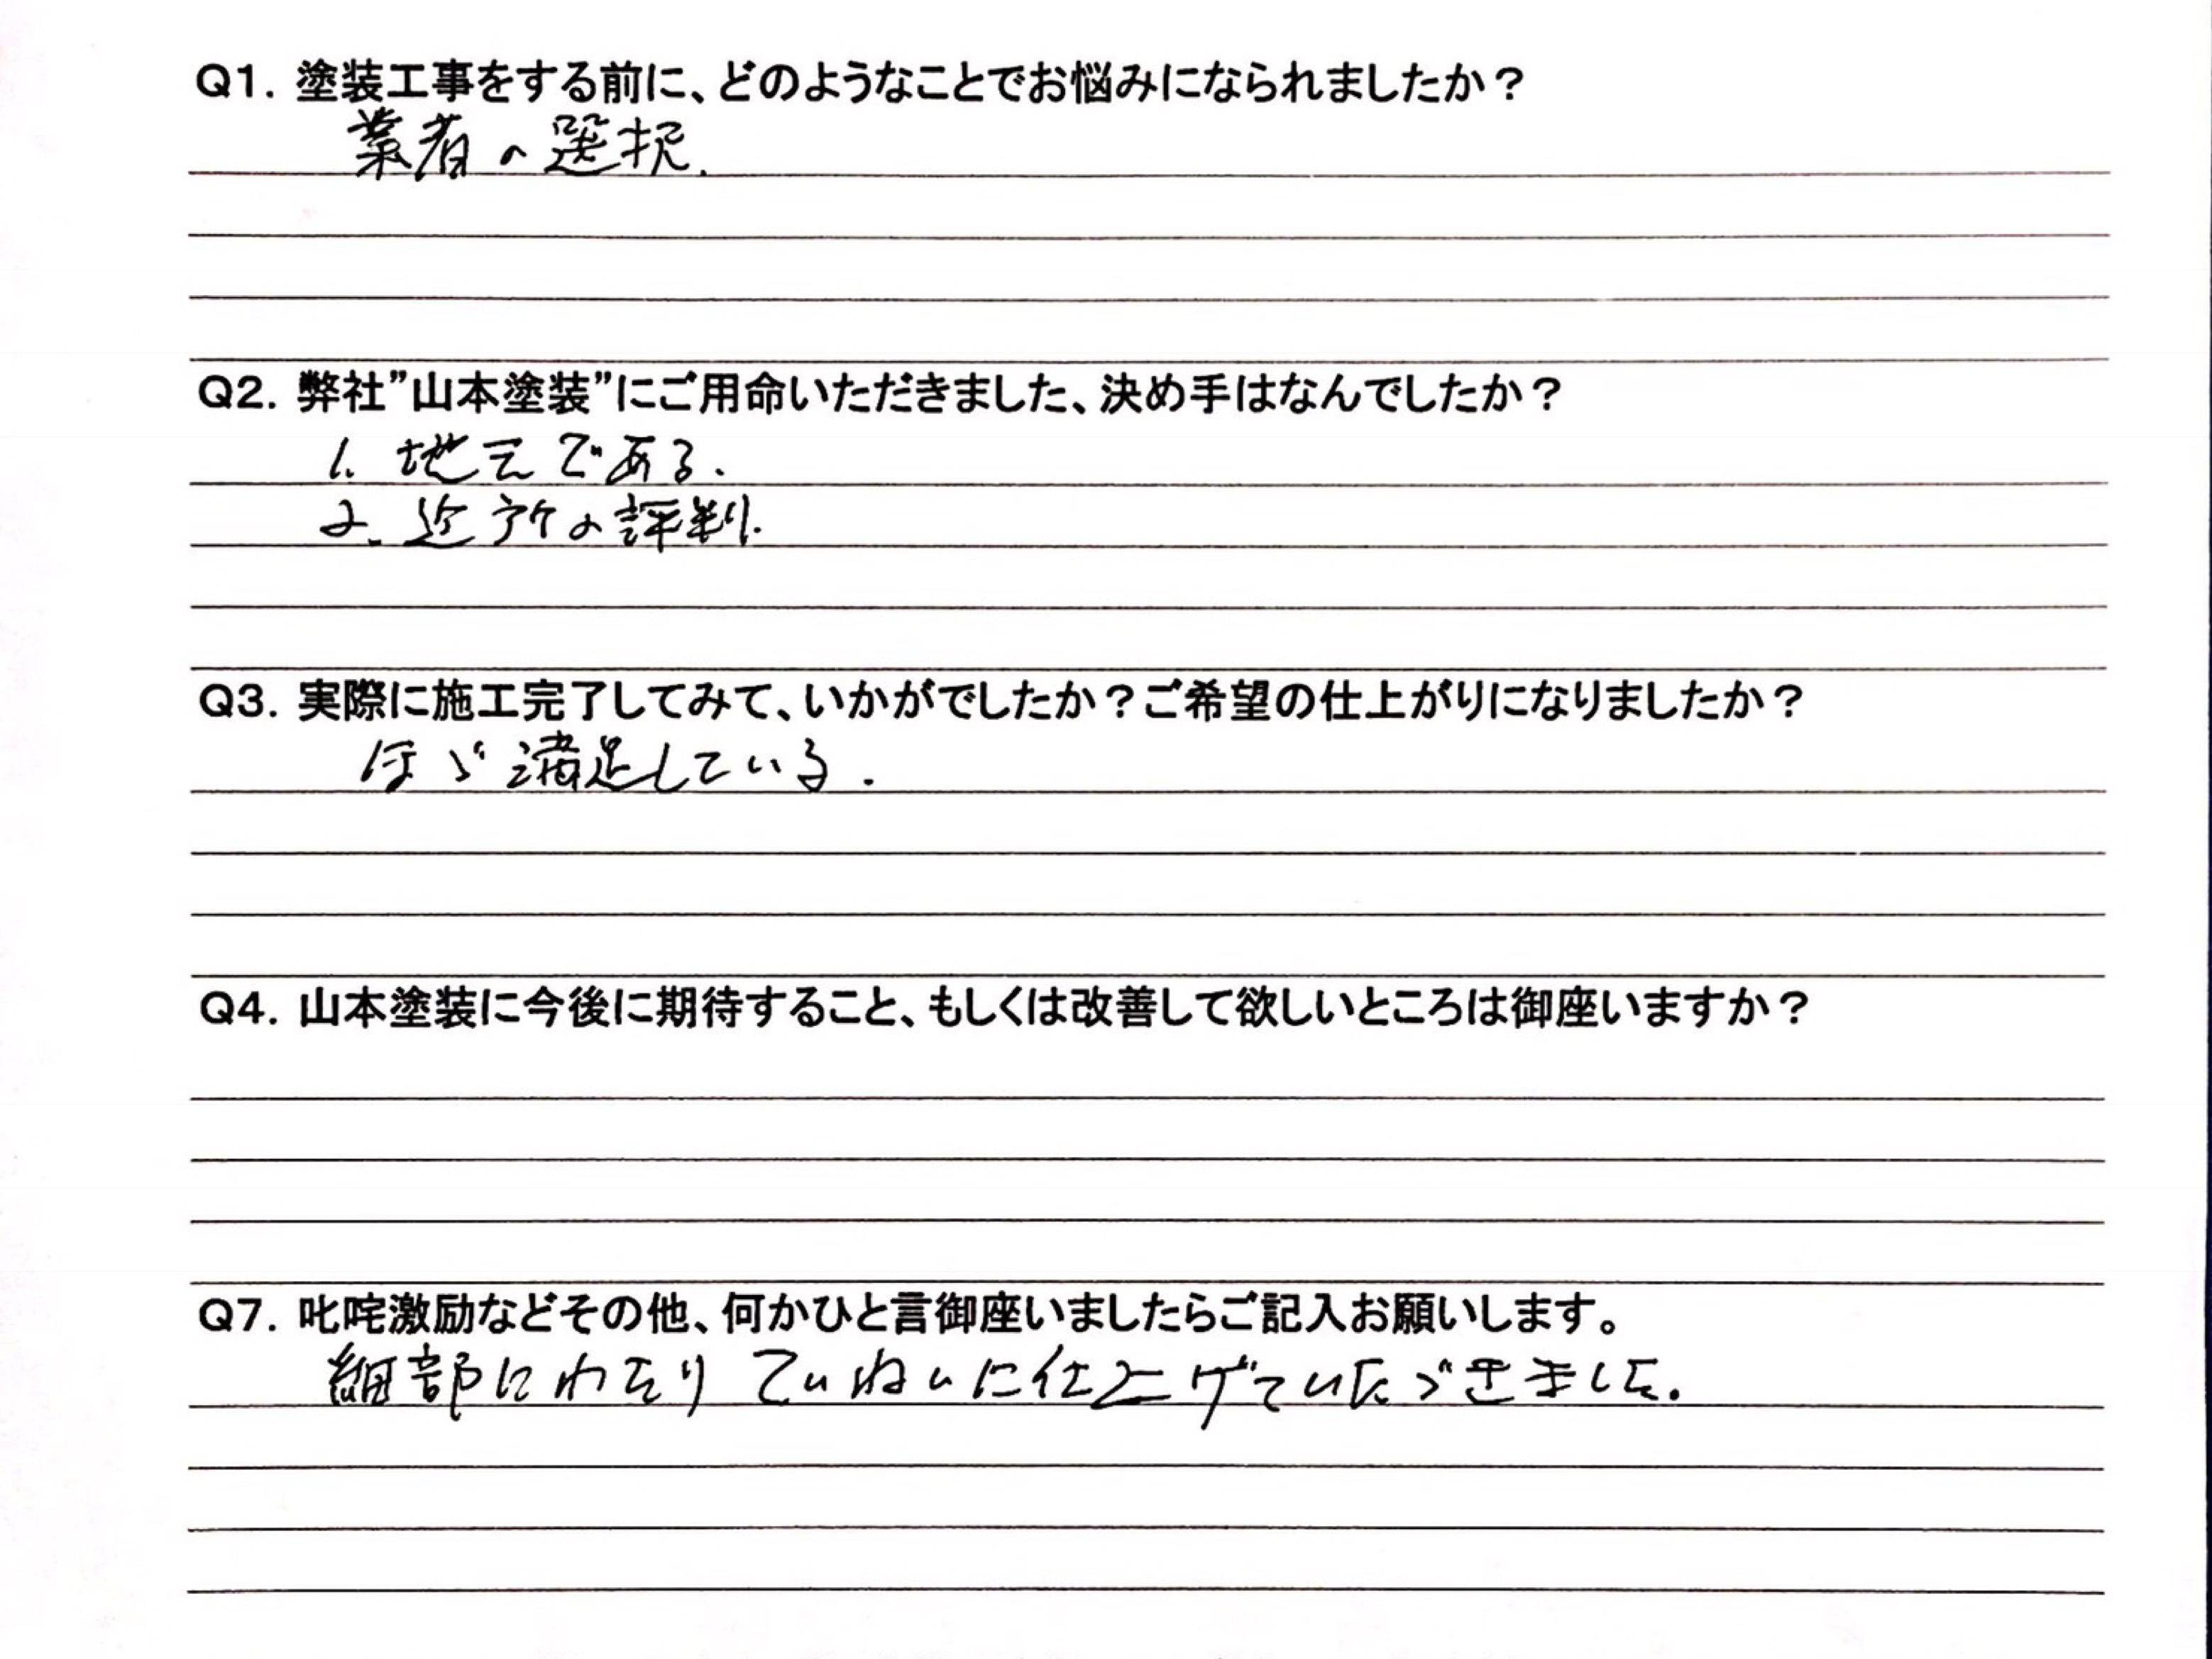 Q1. 塗装工事をする前に、どのようなことでお悩みになられましたか？
業者の選択.
Q2. 弊社”山本塗装”にご用命いただきました、決め手はなんでしたか？
1. 地元である.
2. 近所の評判.
Q3. 実際に施工完了してみて、いかがでしたか？ご希望の仕上がりになりましたか？
ほゞ満足している.
Q4. 山本塗装に今後に期待すること、もしくは改善して欲しいところは御座いますか？
Q7. 叱咤激励などその他、何かひと言御座いましたらご記入お願いします。
細部にわたりていねいに仕上げていたゞきました.